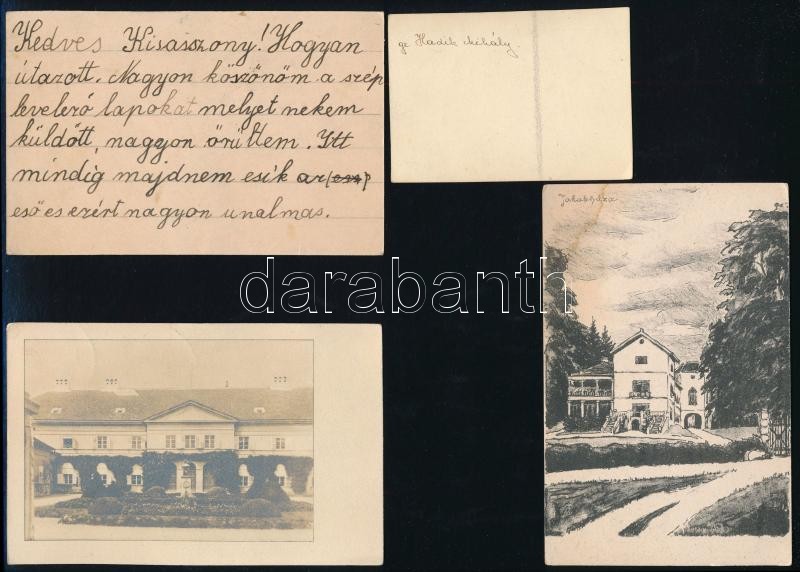 Kedves Kisasszony! Hogyan
útazott. Nagyon köszönöm a szép
leveleró lapokat melyet nekem
küldőtt, nagyon örültem. Itt
mindig majdnem esik az (esz)
eső es ezért nagyon unalmas.
gr Hadik Mihály.
Jakabháza
darabanth